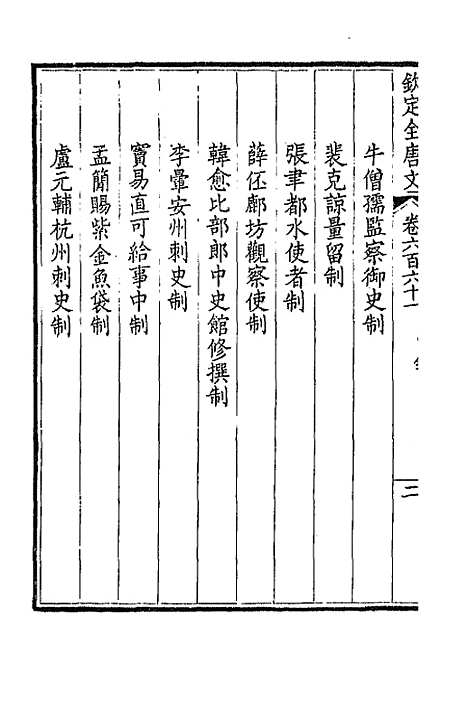 欽定全唐文卷六百六十一
二
牛僧孺監察御史制
裴克諒量留制
張聿都水使者制
薛伾鄜坊觀察使制
韓愈比部郎中史館修撰制
李暈安州刺史制
竇易直可給事中制
孟簡賜紫金魚袋制
盧元輔杭州刺史制